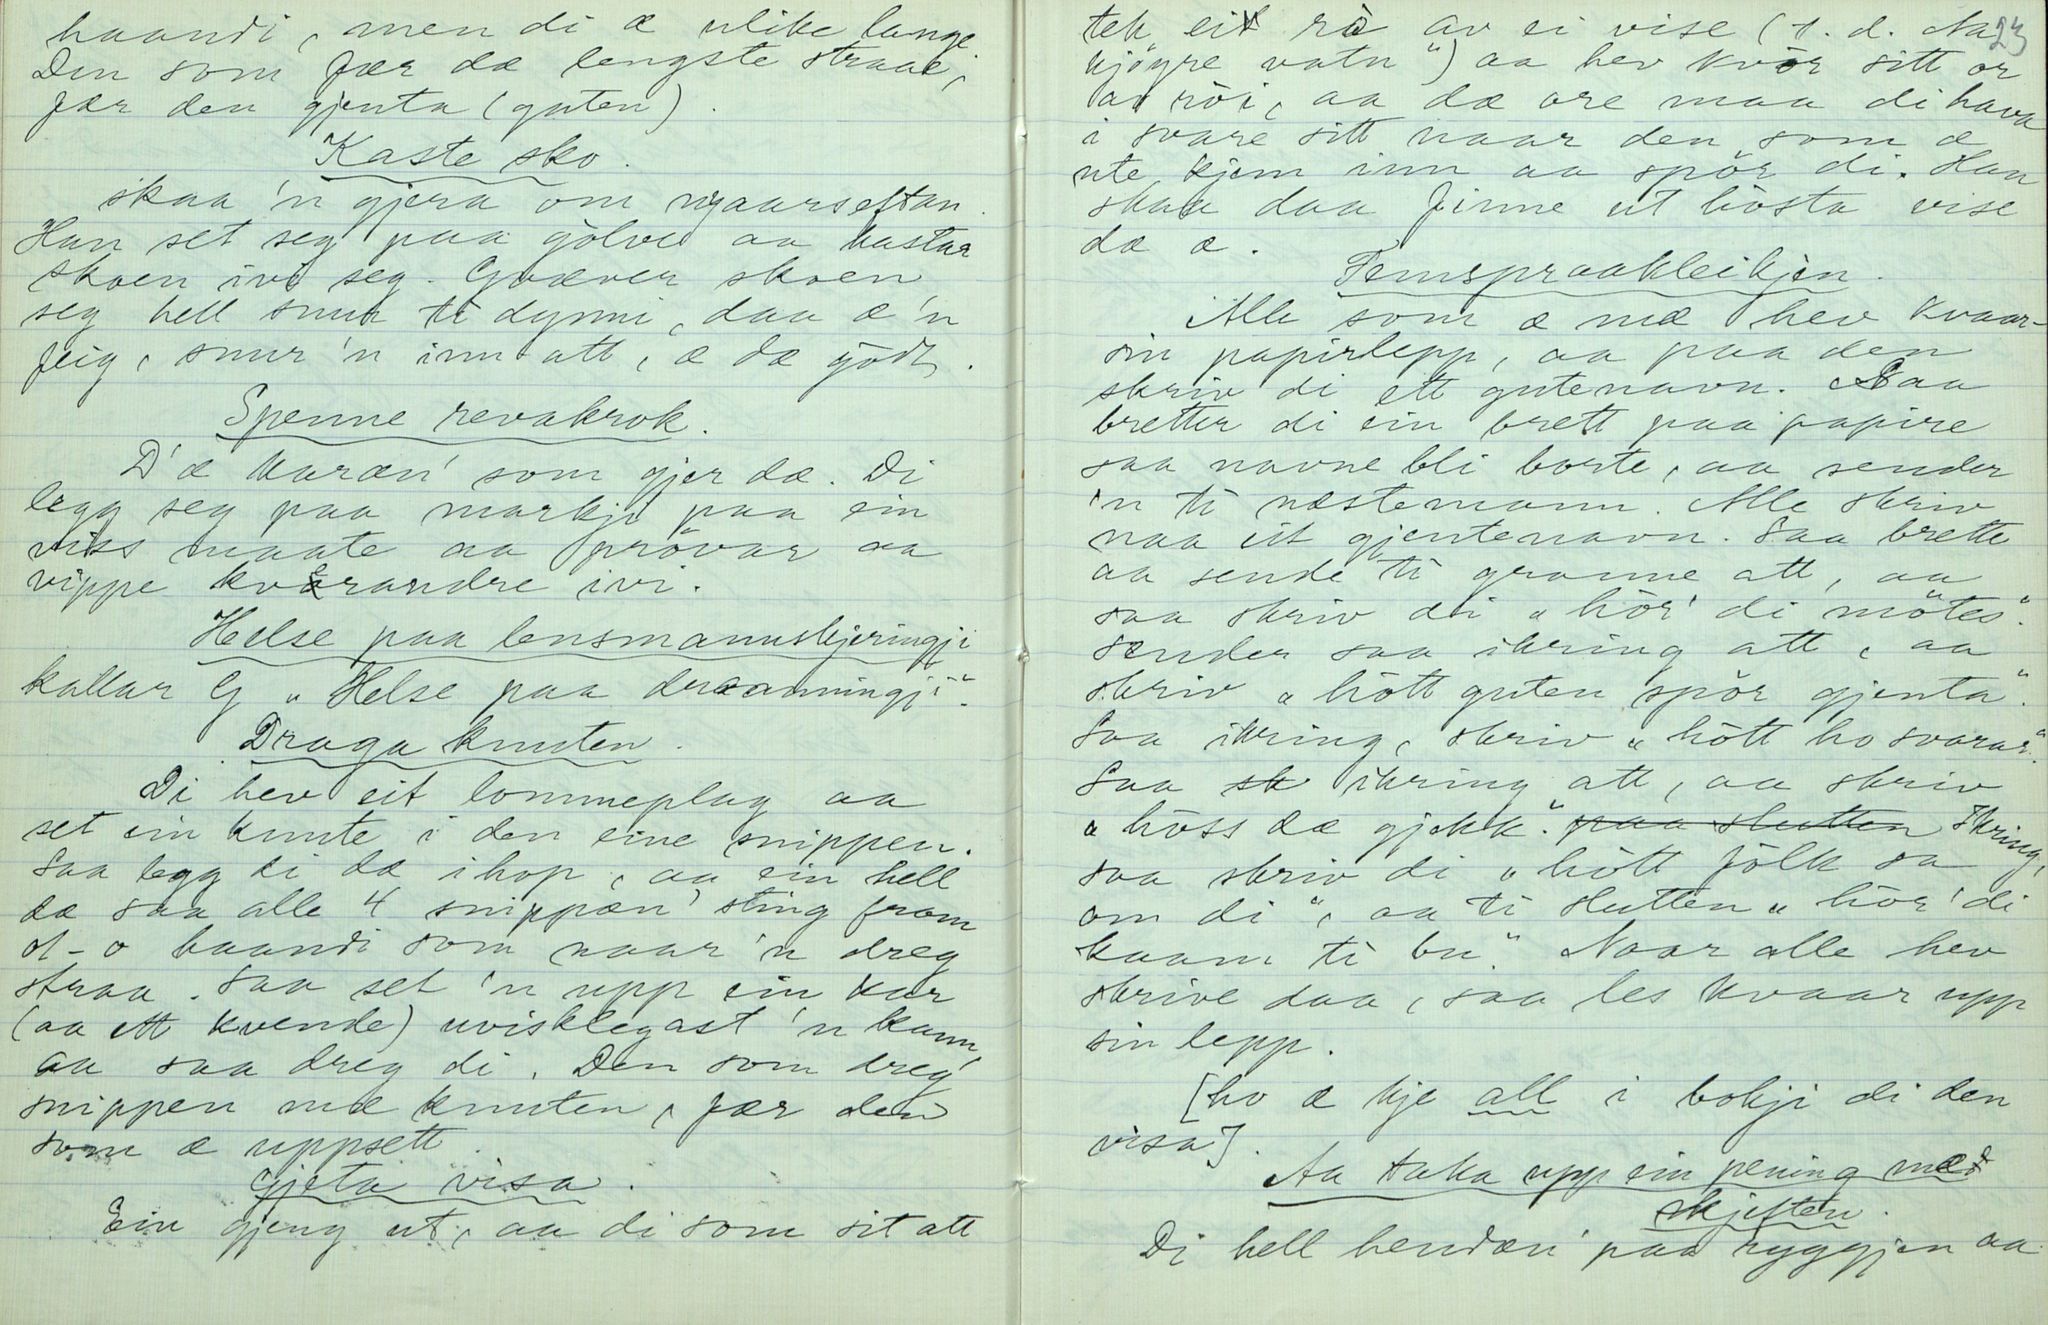 haandi, men di æ ulike lange
Den som fær dæ lengste straae,
fær den gjenta (guten).
Kaste sko.
skaa 'n gjera om nyaarseftan.
Han set seg paa golve aa kastar
skoen ivi seg. Græver skoen
seg hell snur ti dynni, daa æ'n
feig, snur 'n inn att, æ dæ godt.
Spenne revakrok.
D'æ karæn' som gjer dæ. Di
legg seg paa markji paa ein
viss maate aa prövar aa
vippe kvorandre ivi.
Helse paa lensmannskjeringji
kallar eg „Helse paa dronningji".
Draga knuten.
Di hev eit lommeplag aa
set ein knute i den eine snippen.
Saa legg di dæ ihop, aa ein hell
dæ saa alle 4 snippæn' sting fram
ot-o haandi som naar 'n dreg
straa. Saa set 'n upp ein kar
(aa ett kvende) uvisklegast 'n kann,
aa saa dreg di. Den som dreg
snippen mæ knuten, fær den
som æ uppsett.
Gjeta visa.
Ein gjeng ut, aa di som sit att
23
tek eit rö av ei vise (t. d. „No
kjöyre vatn") aa hev kvör sitt or
av röi, aa dæ ore maa di hava
i svare sitt naar den som æ
ute kjem inn aa spör di. Han
skaa daa finne ut hösta vise
dæ æ.
Femspraakleikjen.
Alle som æ mæ hev kvaar-
sin papirlepp, aa paa den
skriv di ett gutenavn. Saa
bretter di ein brett paa papire
saa navne bli borte, aa sender
'n ti næstemann. Alle skriv
naa eit gjentenavn. Saa brette
aa sende ti granne att, aa
saa skriv di „hör' di mötes".
Sender saa ikring att, aa
skriv „hött guten spör gjenta".
Saa ikring, skriv „hött ho svarar".
Saa sk ikring att, aa skriv
„höss dæ gjekk". paa slutten Ikring,
saa skriv di „hött fölk sa
om di", aa ti slutten „hör' di
kaam ti bu". Naar alle hev
skrive daa, saa les kvaar upp
sin lepp.
[ho æ kje all i bokji di den
visa].
Aa taka upp ein pening mæd
skjeften.
Di hell hendæn' paa ryggjen aa